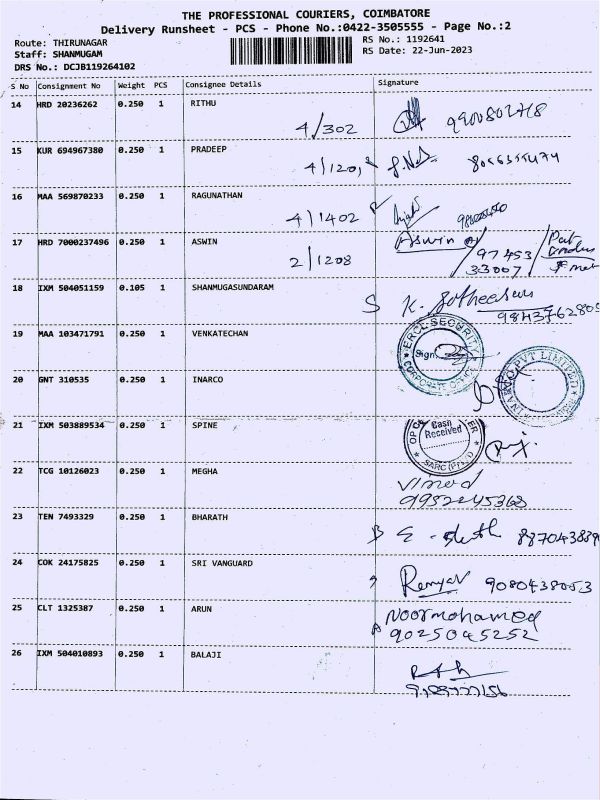 THE PROFESSIONAL COURIERS, COIMBATORE
Delivery Runsheet - PCS - Phone No.:0422-3505555 - Page No.:2
Route: THIRUNAGAR
Staff: SHANMUGAM
DRS No.: DCJB119264102
RS No.: 1192641
RS Date: 22-Jun-2023
S No Consignment No Weight PCS Consignee Details Signature
14 HRD 20236262 0.250 1 RITHU
4/302
15 KUR 694967380 0.250 1 PRADEEP
4/1201
16 MAA 569870233 0.250 1 RAGUNATHAN
4/1402
17 HRD 7000237496 0.250 1 ASWIN Aswin
2/1208 97453
33007
18 IXM 504051159 0.105 1 SHANMUGASUNDARAM
S K.
19 MAA 103471791 0.250 1 VENKATECHAN
ERCL SECURITY
Sign.
CORPORATE OFFICE
20 GNT 310535 0.250 1 INARCO
INARCO PVT LIMITED
21 IXM 503889534 0.250 1 SPINE
Cash
Received
SARC (P)
22 TCG 10126023 0.250 1 MEGHA
Vinod
9952245368
23 TEN 7493329 0.250 1 BHARATH
24 COK 24175825 0.250 1 SRI VANGUARD
Remya 9080438053
25 CLT 1325387 0.250 1 ARUN
Noormohamed
9025045252
26 IXM 504010893 0.250 1 BALAJI